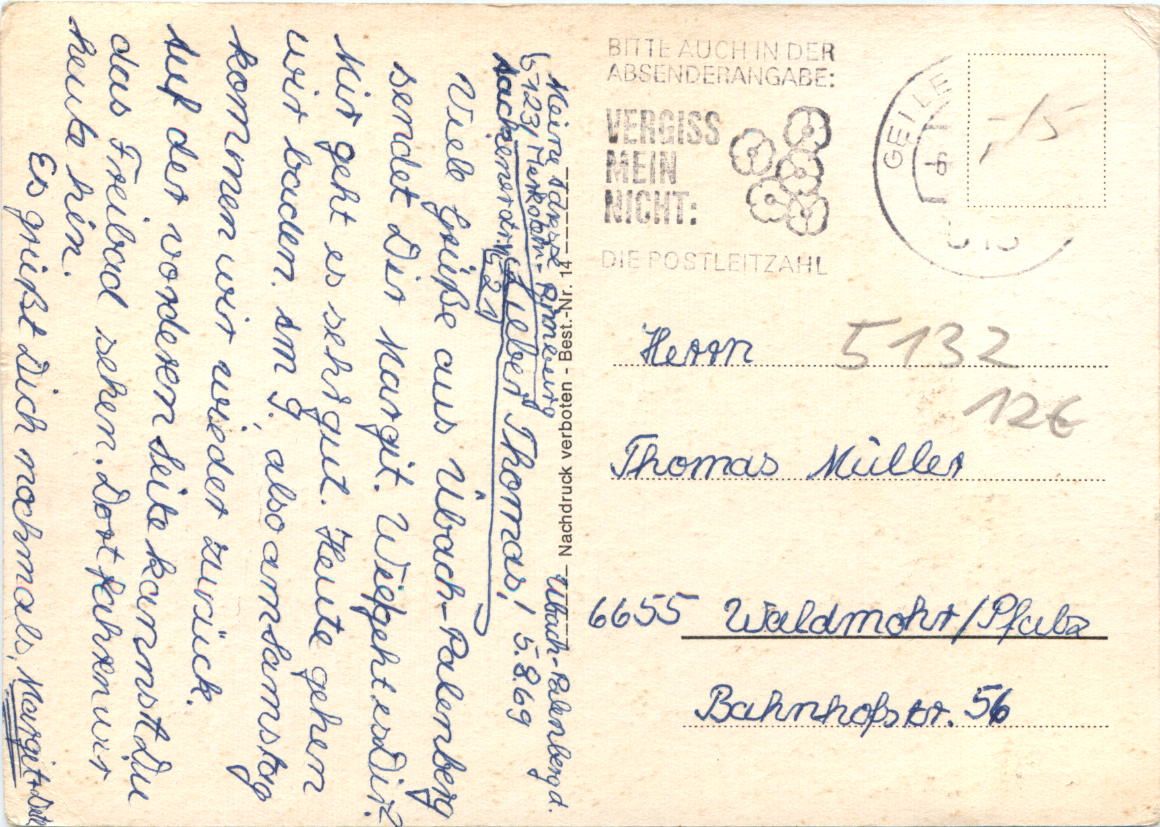 Übach-Palenberg d.
5.8.69
Lieber Thomas!
Viele Grüße aus Übach-Palenberg
sendet Dir Margit. Wie geht es Dir?
Mir geht es sehr gut. Heute gehen
wir baden. Am 9. also am Samstag
kommen wir wieder zurück.
Auf der vorderen Seite kannst Du
das Freibad sehen. Dort fahren wir
heute hin.
Es grüßt Dich nochmals, Margit +
Meine Adresse
5123 Merkstein-
21
Nachdruck verboten - Best.-Nr. 14
BITTE AUCH IN DER
ABSENDERANGABE:
VERGISS
MEIN
NICHT:
DIE POSTLEITZAHL
GEILE
513
-/5
Herrn
5132
12€
Thomas Müller
6655 Waldmohr/Pfalz
Bahnhofstr. 56